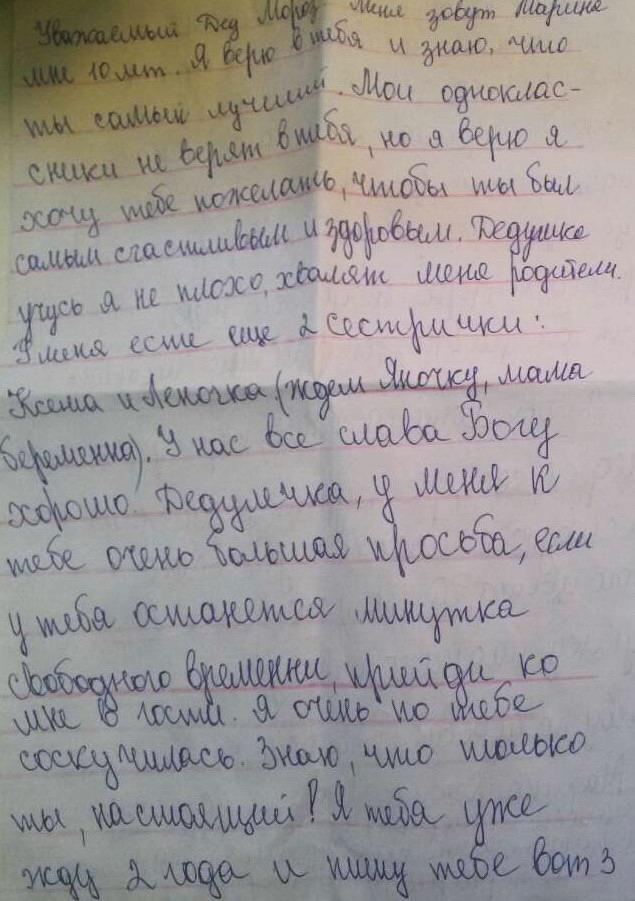 Уважаемый Дед Мороз меня зовут Марина
мне 10 лет. Я верю в тебя и знаю, что
ты самый лучший. Мои однаклас-
сники не верят в тебя, но я верю я
хочу тебе пожелать, чтобы ты был
самым счастливым и здоровым. Дедушка
учусь я не плохо, хвалят меня родители.
У меня есте еще 2 сестрички:
Ксюша и Леночка (ждем Яночку, мама
беременна). У нас все слава Богу
хорошо. Дедулечка, у меня к
тебе очень большая просьба, если
у тебя останется минутка
свободного временни, прийди ко
мне в гости. Я очень по тебе
соскучилась. Знаю, что только
ты, настоящий! Я тебя уже
жду 2 года и пишу тебе вот 3